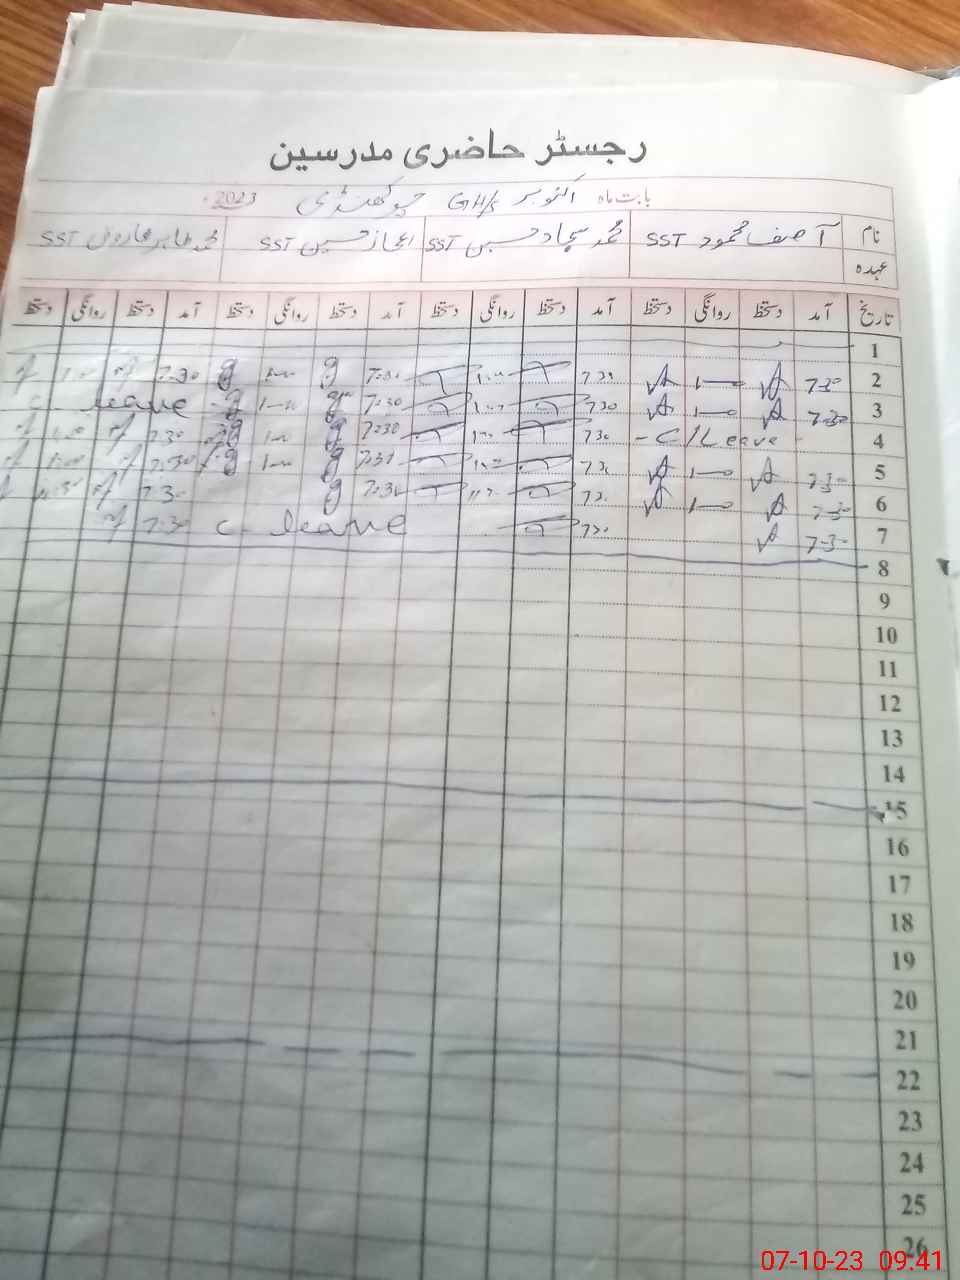 رجسٹر حاضری مدرسین
بابت ماہ اکتوبر GHS چوکھنڈی 2023ء
نام آصف محمود SST محمد سجاد حسین SST اعجاز حسین SST محمد طاہر فاروق SST
عہدہ
تاریخ آمد دستخط روانگی دستخط آمد دستخط روانگی دستخط آمد دستخط روانگی دستخط آمد دستخط روانگی دستخط
1
2 7-30 1-00 7 30 1:00 7:30 1-00 7:30 1:00
3 7-30 1-00 7 30 1:00 7:30 1-00 C leave
4 - C/Leave - 7 30 1:00 7:30 1-00 7:30 1:00
5 7-30 1-00 7 30 1:00 7:30 1-00 7:30 1:00
6 7-30 1-00 7 30 7:30 7:30
7 7-30 7 30 C leave 7:30
8
9
10
11
12
13
14
15
16
17
18
19
20
21
22
23
24
25
26
07-10-23 09:41